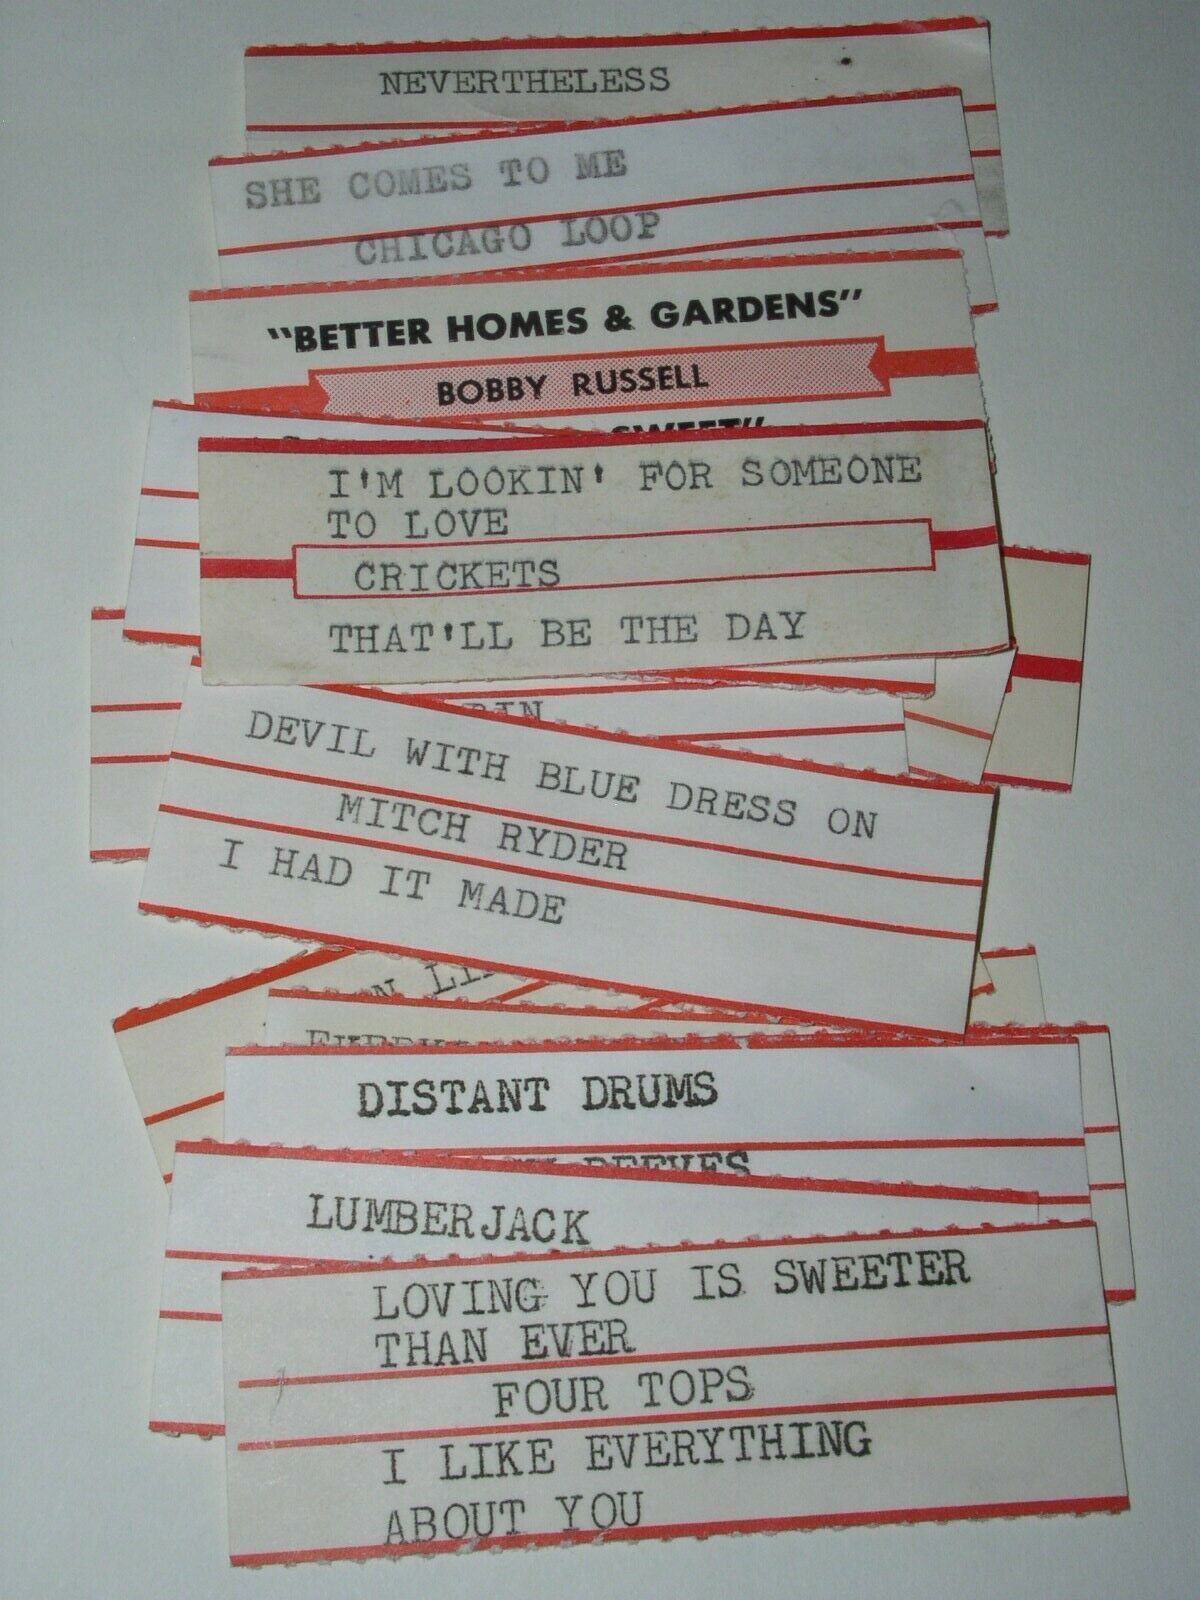 NEVERTHELESS
SHE COMES TO ME
CHICAGO LOOP
"BETTER HOMES & GARDENS"
BOBBY RUSSELL
SWEET"
I'M LOOKIN' FOR SOMEONE
TO LOVE
CRICKETS
THAT'LL BE THE DAY
DEVIL WITH BLUE DRESS ON
MITCH RYDER
I HAD IT MADE
DISTANT DRUMS
REEVES
LUMBERJACK
LOVING YOU IS SWEETER
THAN EVER
FOUR TOPS
I LIKE EVERYTHING
ABOUT YOU